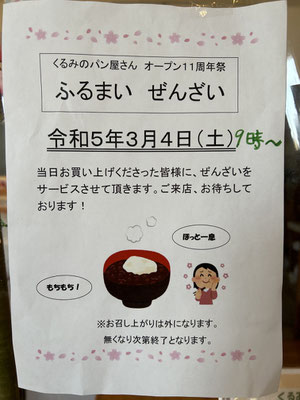 くるみのパン屋さん オープン11周年祭
ふるまい ぜんざい
令和5年3月4日(土)9時~
当日お買い上げくださった皆様に、ぜんざいを
サービスさせて頂きます。ご来店、お待ちして
おります!
ほっと一息
もちもち!
※お召し上がりは外になります。
無くなり次第終了となります。